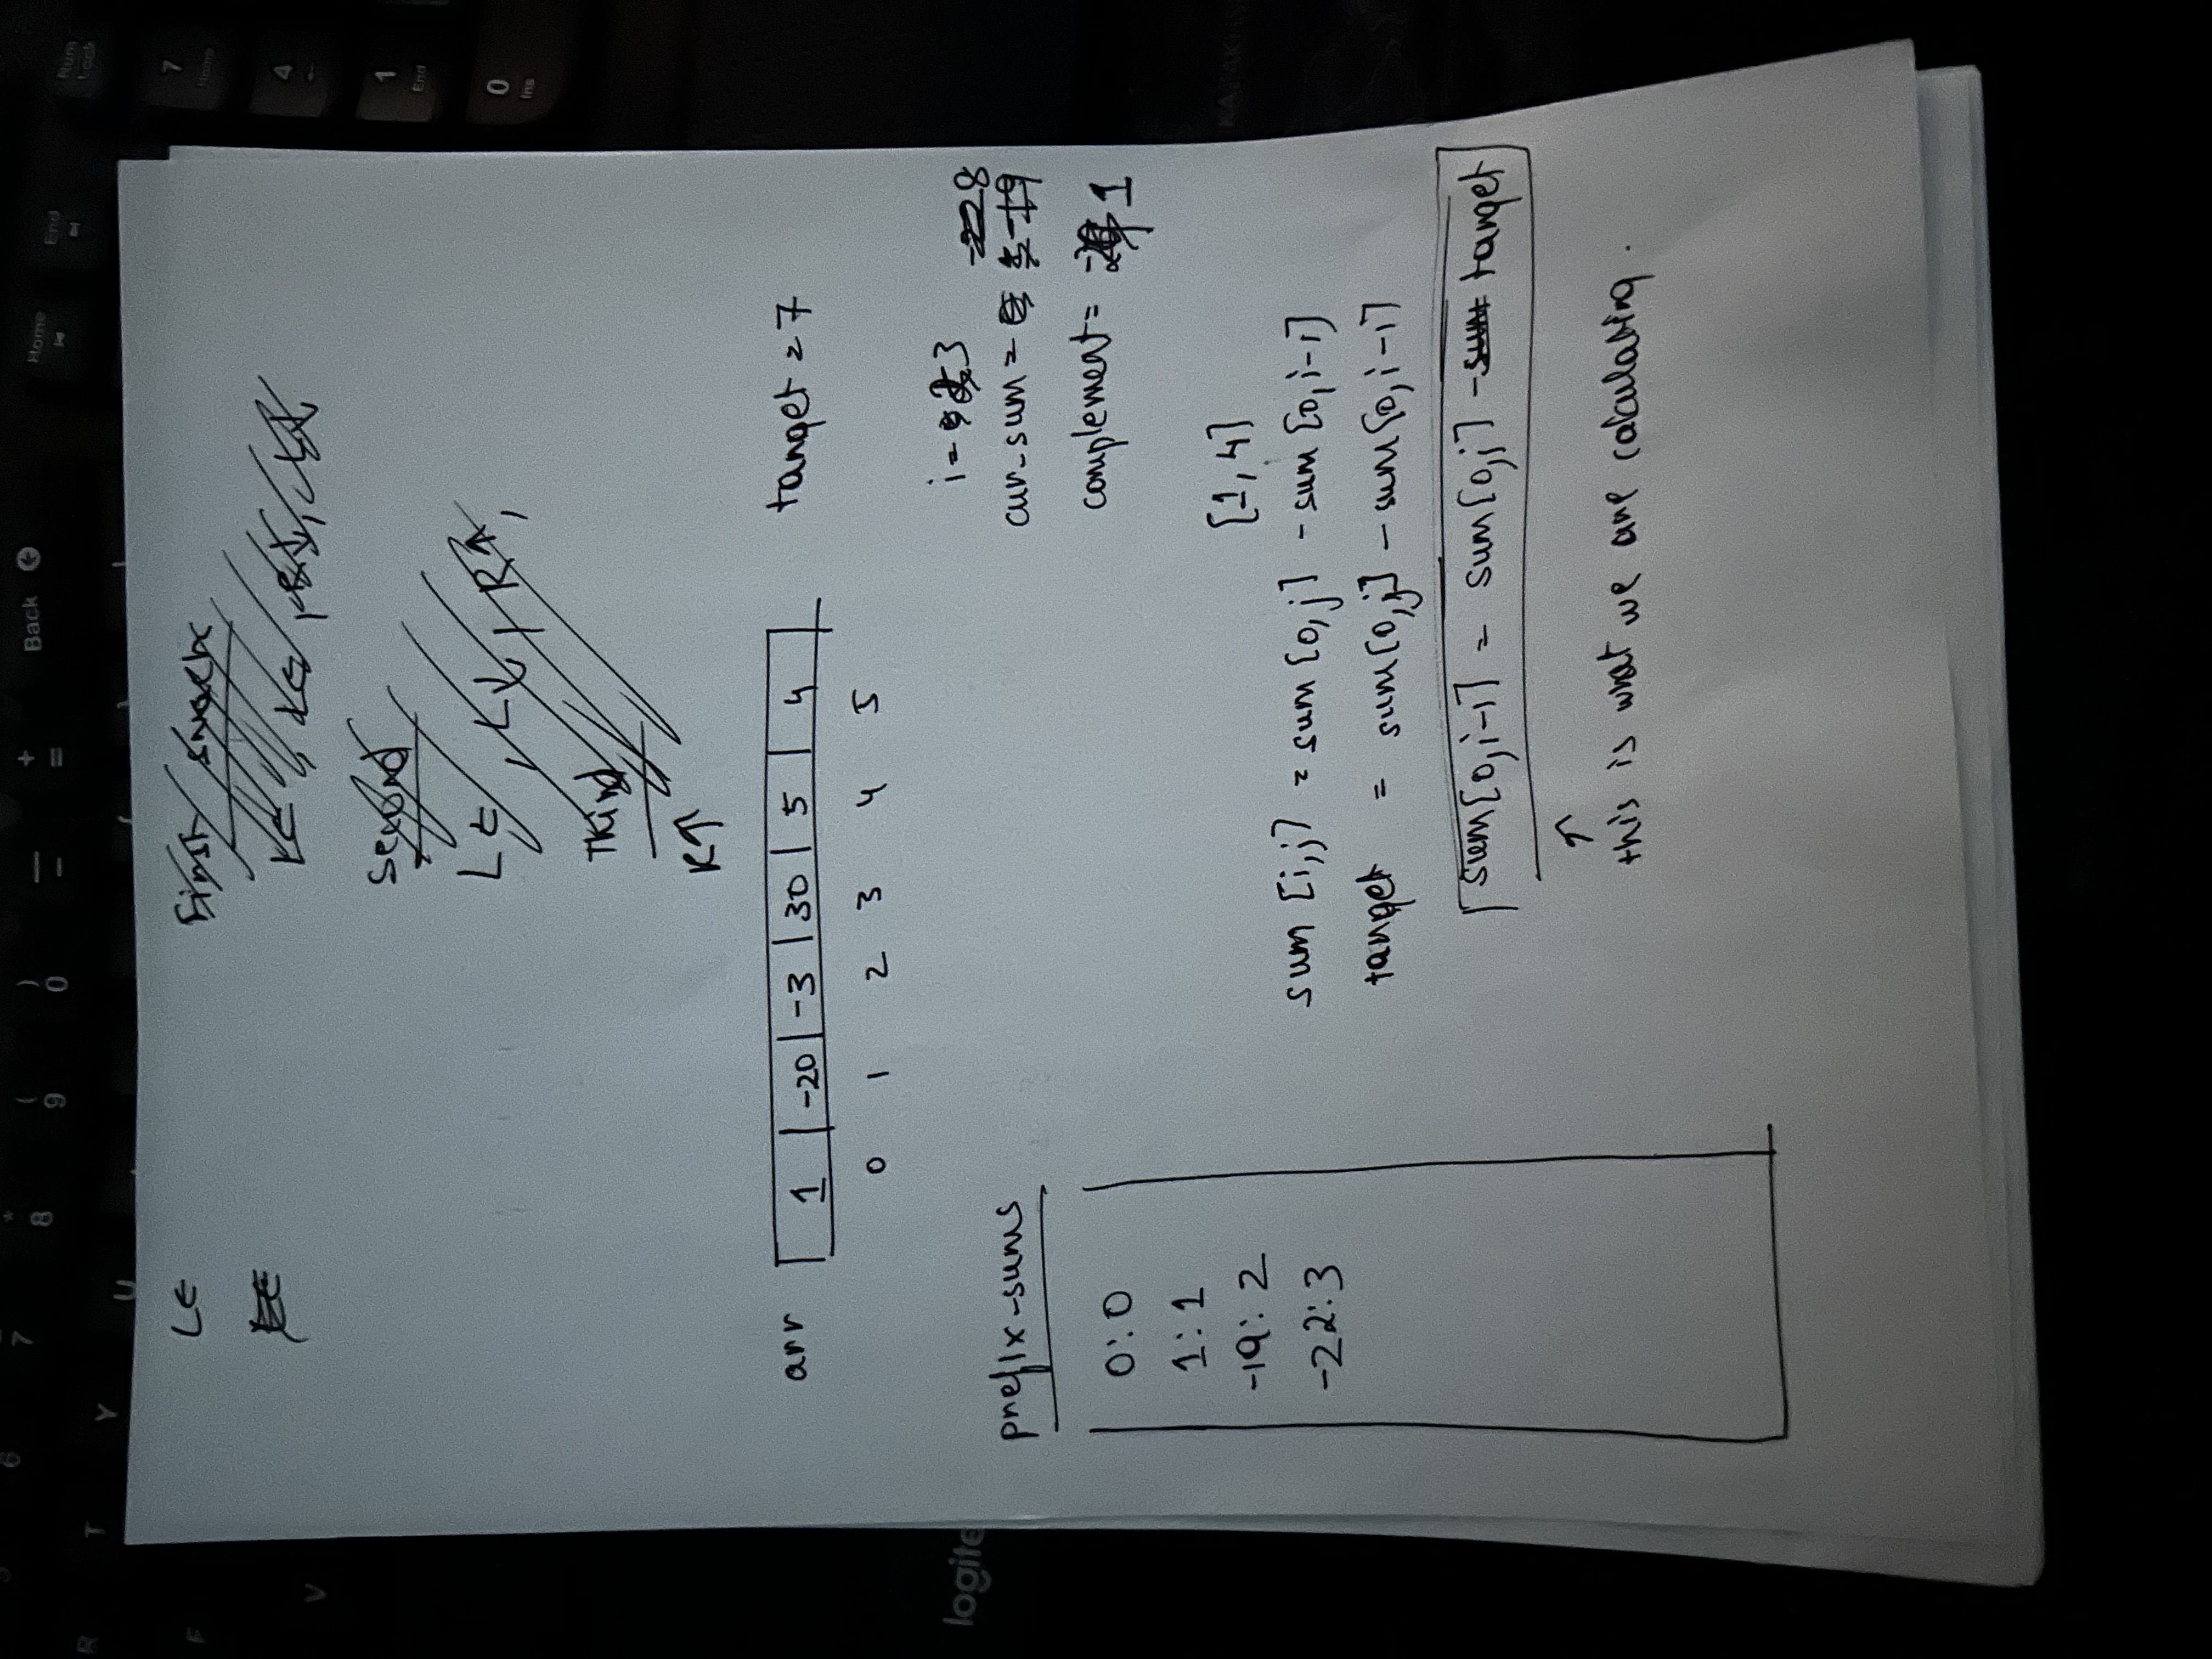 6 7 * 8 ( 9 ) 0 — - + = Back Home End Num Lock
R T Y U
F
V
7 Home
4
1 End
0 Ins
logite
LE
First
LE, LE
Second
LE, L↓, R↑,
Third
R↑
arr 1 | -20 | -3 | 30 | 5 | 4 target = 7
0 1 2 3 4 5
i = 3
8
cur-sum = -19
complement = 1
prefix-sums
0:0
1:1
-19:2
-22:3
[1,4]
sum [i,j] = sum [0,j] - sum [0,i-1]
target = sum[0,j] - sum[0,i-1]
sum[0,i-1] = sum[0,j] - sum target
↑
this is what we are calculating.